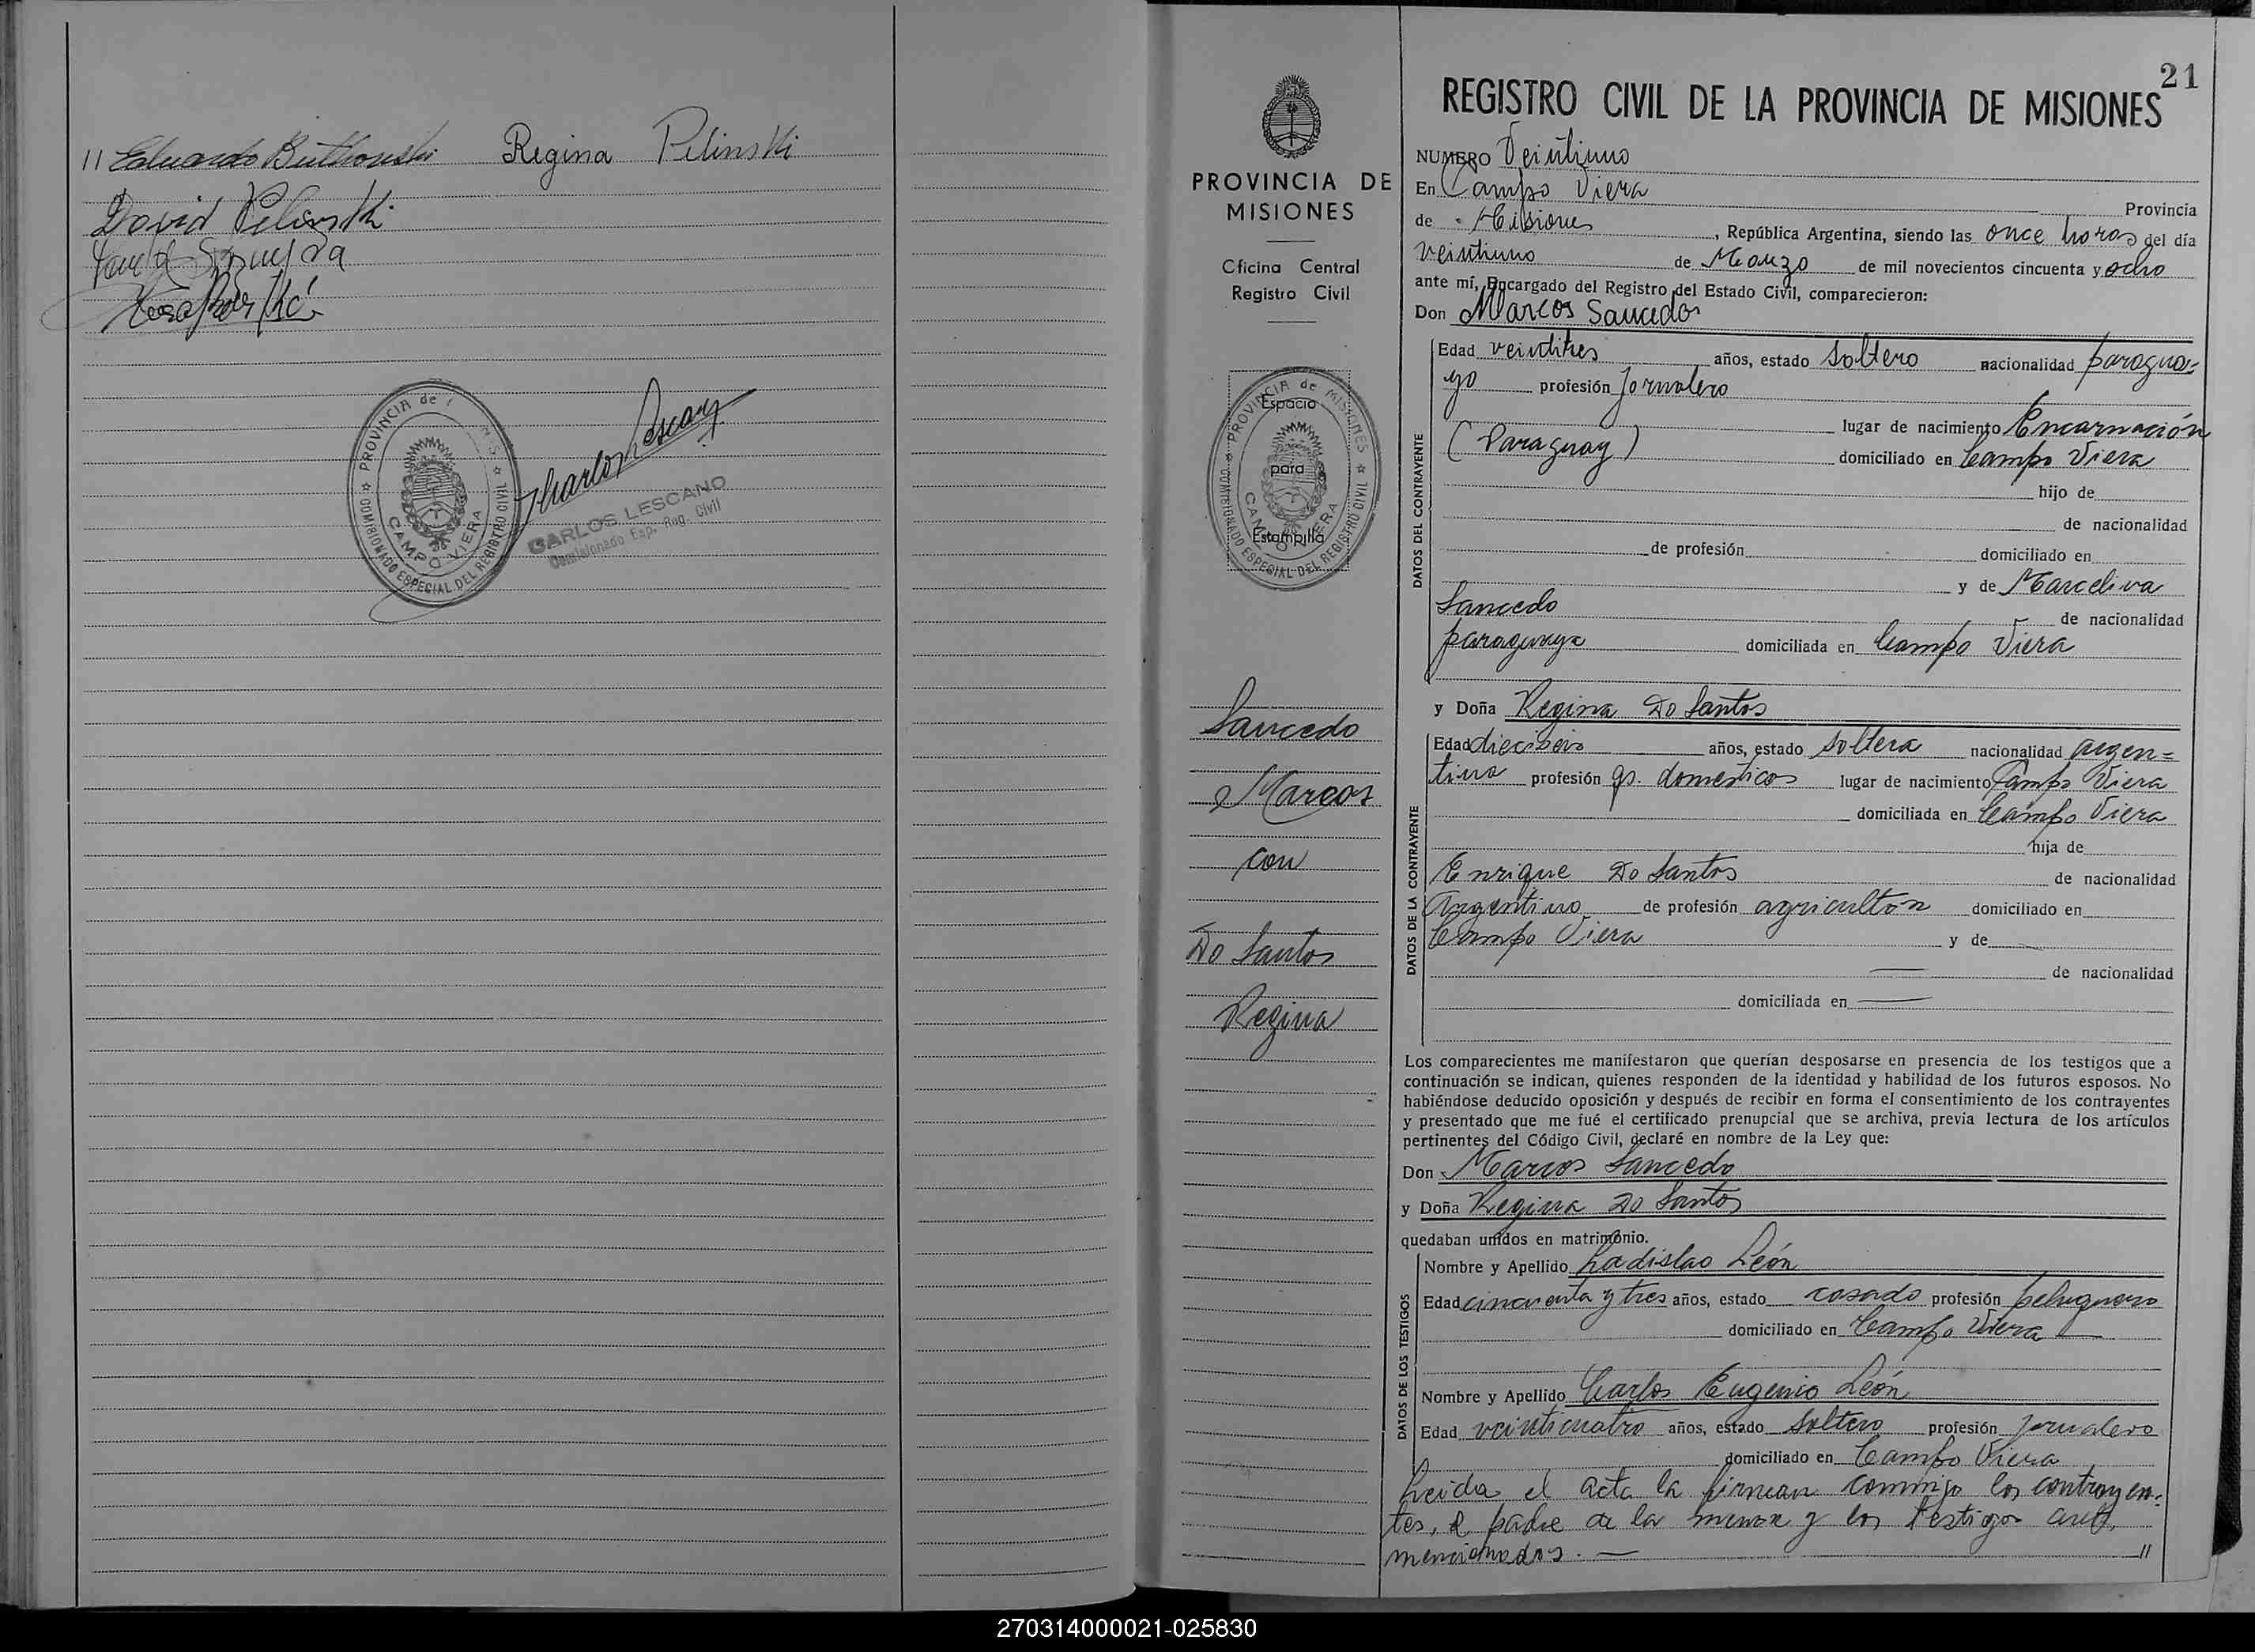 11 Eduardo Buthouski Regina Pelinski
David Pelinski
PROVINCIA de
COMISIONADO ESPECIAL DEL REGISTRO CIVIL
CAMPO VIERA
Carlos Lescano
CARLOS LESCANO
Comisionado Esp. Reg. Civil
PROVINCIA DE
MISIONES
Oficina Central
Registro Civil
PROVINCIA de MISIONES
COMISIONADO ESPECIAL DEL REGISTRO CIVIL
CAMPO VIERA
Espacio
para
Estampilla
Saucedo
Marcos
con
Do Santos
Regina
21
REGISTRO CIVIL DE LA PROVINCIA DE MISIONES
NUMERO Veintiuno
En Campo Viera Provincia
de Misiones, República Argentina, siendo las once horas del día
veintiuno de Marzo de mil novecientos cincuenta y ocho
ante mí, Encargado del Registro del Estado Civil, comparecieron:
Don Marcos Saucedo
DATOS DEL CONTRAYENTE
Edad veintitres años, estado soltero nacionalidad paragua=
yo profesión Jornalero
lugar de nacimiento Encarnación
(Paraguay) domiciliado en Campo Viera
hijo de
de nacionalidad
de profesión domiciliado en
y de Marcelina
Saucedo de nacionalidad
paraguaya domiciliada en Campo Viera
y Doña Regina Do Santos
DATOS DE LA CONTRAYENTE
Edad dieciseis años, estado soltera nacionalidad argen=
tina profesión qs. domesticos lugar de nacimiento Campo Viera
domiciliada en Campo Viera
hija de
Enrique Do Santos de nacionalidad
Argentino de profesión agricultor domiciliado en
Campo Viera y de
— de nacionalidad
domiciliada en —
Los comparecientes me manifestaron que querían desposarse en presencia de los testigos que a
continuación se indican, quienes responden de la identidad y habilidad de los futuros esposos. No
habiéndose deducido oposición y después de recibir en forma el consentimiento de los contrayentes
y presentado que me fué el certificado prenupcial que se archiva, previa lectura de los artículos
pertinentes del Código Civil, declaré en nombre de la Ley que:
Don Marcos Saucedo
y Doña Regina Do Santos
quedaban unidos en matrimonio.
DATOS DE LOS TESTIGOS
Nombre y Apellido Ladislao León
Edad cincuenta y tres años, estado casado profesión peluquero
domiciliado en Campo Viera
Nombre y Apellido Carlos Eugenio León
Edad veinticuatro años, estado soltero profesión jornalero
domiciliado en Campo Viera
Leida el acta la firman conmigo los contrayen=
tes, el padre de la menor y los testigos ant.
mencionados. — //
270314000021-025830